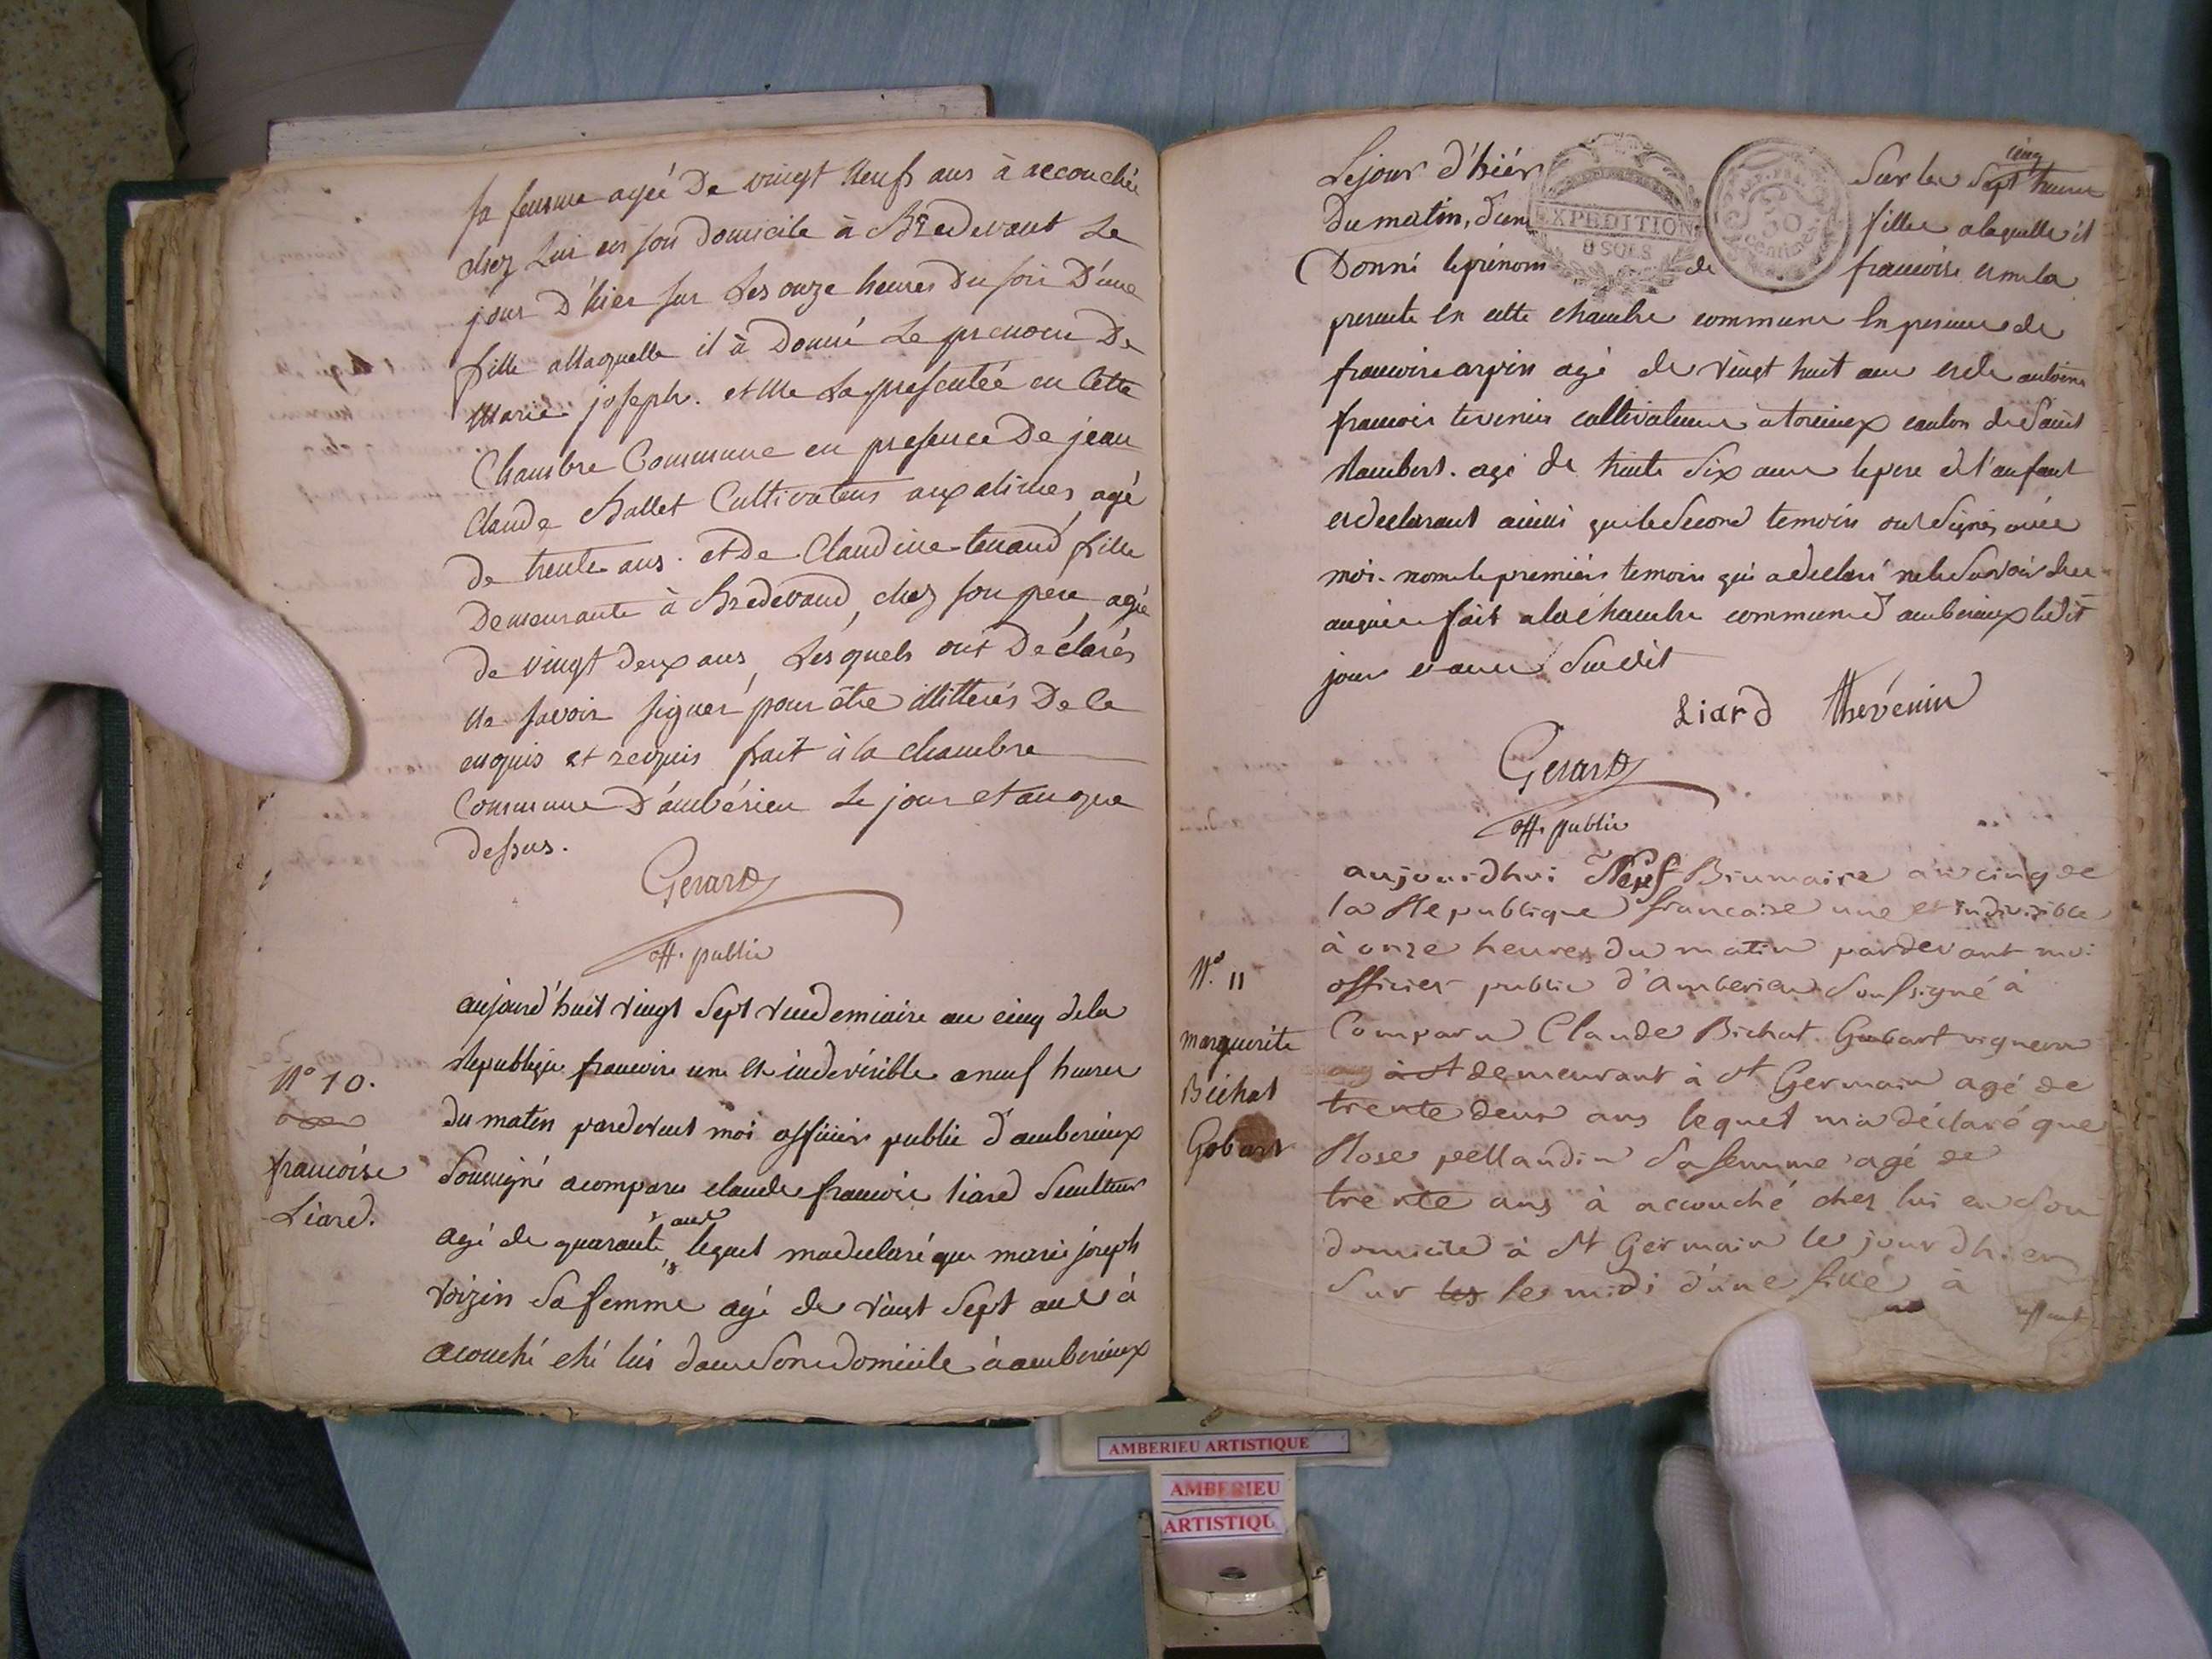 sa femme ageé De vingt neufs ans à accouchée
chez Lui en son Domicile à Bredevant Le
jour D'hier sur Les onze heures Du soir D'une
fille allaquelle il à Donné Le prenom De
Marie joseph. et Me La presentée en Cette
Chambre Commune en presence De jean
Claude Ballet Cultivateur aux alimes, agé
de trente ans. et De Claudine tenand fille
Demeurante à Bredevand, chez son père, agée
de vingt deux ans, Lesquels ont Déclarés
Ne savoir signer pour être illittérés De ce
enquis et requis fait à la Chambre
Commune D'ambérieu Le jour et an que
dessus.
Gerard
off. public
N° 10.
francoise
Liard.
aujourd'huit vingt Sept vendemiaire an cinq dela
Republique francoise une et indevisible a neuf heures
du matin pardevent moi officier public d'amberieux
Soussigné acomparu claude francois liard Sculteur
agé de quarante ans lequel ma declaré que marie joseph
voizin Sa femme agé de vingt Sept ans à
acouché ché lui dans Son domicile à amberieux
Le jour d'hiér Sur les cinq heures
Du matin, d'une fille a laquelle il
EXPÉDITION
8 SOLS
50
centimes
Donné le prénom de francoise et me la
presente en cette chambre commune en presence de
francoise arpin agé de vingt huit ans et de antoine
francois tevenin cultivateur a torcieux canton de Saint
Rambert. agé de trente Six ans le pere de l'anfant
et declarant ainsi que le Second temoin ont Signés avec
moi. nom le premiér temoin qui a declaré ne le Savoir dece
anquie fait a la chambre commune d'amberieux ledit
jour et an Susdit
Liard Thévenin
Gerard
off. public
N.° 11
marguerite
Bichat
Gobart
aujourdhui Neuf Brumaire an cinq de
la Republique francaise une et indivisible
à onze heures du matin pardevant moi
officier public d'Amberieu Soussigné à
Comparu Claude Bichat Gobart vigneron
à St demeurant à St Germain agé de
trente deux ans lequel m'a déclaré que
Rose pellandin Sa femme agé de
trente ans à accouché chez lui en Son
domicile à St Germain le jour dhier
Sur les le midi d'une fille à
AMBERIEU ARTISTIQUE
AMBERIEU
ARTISTIQU